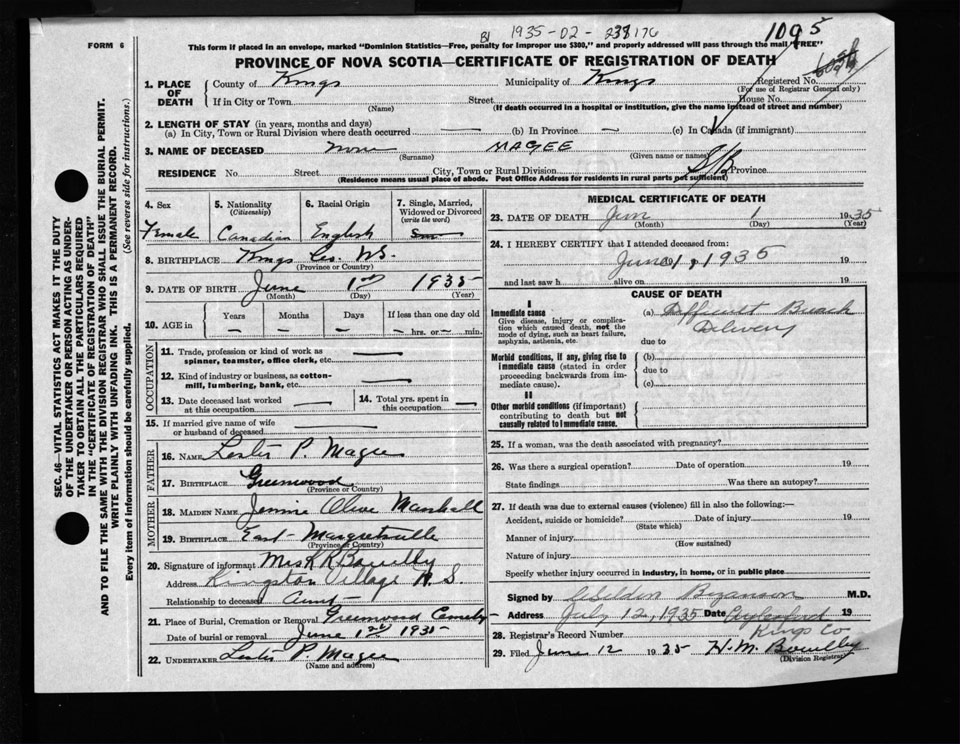 1935-02-238176
1095
FORM 6
This form if placed in an envelope, marked "Dominion Statistics—Free, penalty for improper use $300," and properly addressed will pass through the mail "FREE"
PROVINCE OF NOVA SCOTIA—CERTIFICATE OF REGISTRATION OF DEATH
1. PLACE OF DEATH
County of Kings
Municipality of Kings
Registered No.
(For use of Registrar General only)
If in City or Town
(Name)
Street
House No.
(If death occurred in a hospital or institution, give the name instead of street and number)
2. LENGTH OF STAY (in years, months and days)
(a) In City, Town or Rural Division where death occurred — (b) In Province — (c) In Canada (if immigrant)
3. NAME OF DECEASED MAGEE
(Surname) (Given name or names)
RESIDENCE No. Street City, Town or Rural Division Province
(Residence means usual place of abode. Post Office Address for residents in rural parts not sufficient)
4. Sex
Female
5. Nationality
(Citizenship)
Canadian
6. Racial Origin
English
7. Single, Married, Widowed or Divorced
(write the word)
8. BIRTHPLACE Kings Co. N.S.
(Province or Country)
9. DATE OF BIRTH June 1st 1935
(Month) (Day) (Year)
10. AGE in
Years Months Days If less than one day old
— — — — hrs. or — min.
OCCUPATION
11. Trade, profession or kind of work as spinner, teamster, office clerk, etc. —
12. Kind of industry or business, as cotton-mill, lumbering, bank, etc. —
13. Date deceased last worked at this occupation —
14. Total yrs. spent in this occupation —
15. If married give name of wife or husband of deceased —
FATHER
16. NAME Lester P. Magee
17. BIRTHPLACE Greenwood
(Province or Country)
MOTHER
18. MAIDEN NAME Jennie Olive Marshall
19. BIRTHPLACE East Margretsville
(Province or Country)
20. Signature of informant Mrs
Address Kingston Village N.S.
Relationship to deceased Aunt
21. Place of Burial, Cremation or Removal Greenwood
Date of burial or removal June 1935
22. UNDERTAKER Lester P. Magee
(Name and address)
MEDICAL CERTIFICATE OF DEATH
23. DATE OF DEATH 1 1935
(Month) (Day) (Year)
24. I HEREBY CERTIFY that I attended deceased from:
June 1, 1935 19
and last saw h alive on 19
CAUSE OF DEATH
I
Immediate cause
Give disease, injury or complication which caused death, not the mode of dying, such as heart failure, asphyxia, asthenia, etc.
(a) Difficult Breach
Delivery
due to
Morbid conditions, if any, giving rise to immediate cause (stated in order proceeding backwards from immediate cause).
(b)
due to
(c)
II
Other morbid conditions (if important) contributing to death but not causally related to immediate cause.
25. If a woman, was the death associated with pregnancy?
26. Was there a surgical operation? Date of operation 19
State findings Was there an autopsy?
27. If death was due to external causes (violence) fill in also the following:—
Accident, suicide or homicide? Date of injury 19
(State which)
Manner of injury
(How sustained)
Nature of injury
Specify whether injury occurred in industry, in home, or in public place
Signed by M.D.
Address July 12, 1935 Date Aylesford 19
Kings Co
28. Registrar's Record Number
29. Filed June 12 1935 H.M.
(Division Registrar)
SEC. 46—VITAL STATISTICS ACT MAKES IT THE DUTY
OF THE UNDERTAKER OR PERSON ACTING AS UNDER-
TAKER TO OBTAIN ALL THE PARTICULARS REQUIRED
IN THE "CERTIFICATE OF REGISTRATION OF DEATH"
AND TO FILE THE SAME WITH THE DIVISION REGISTRAR WHO SHALL ISSUE THE BURIAL PERMIT.
WRITE PLAINLY WITH UNFADING INK. THIS IS A PERMANENT RECORD.
Every item of information should be carefully supplied. (See reverse side for instructions.)